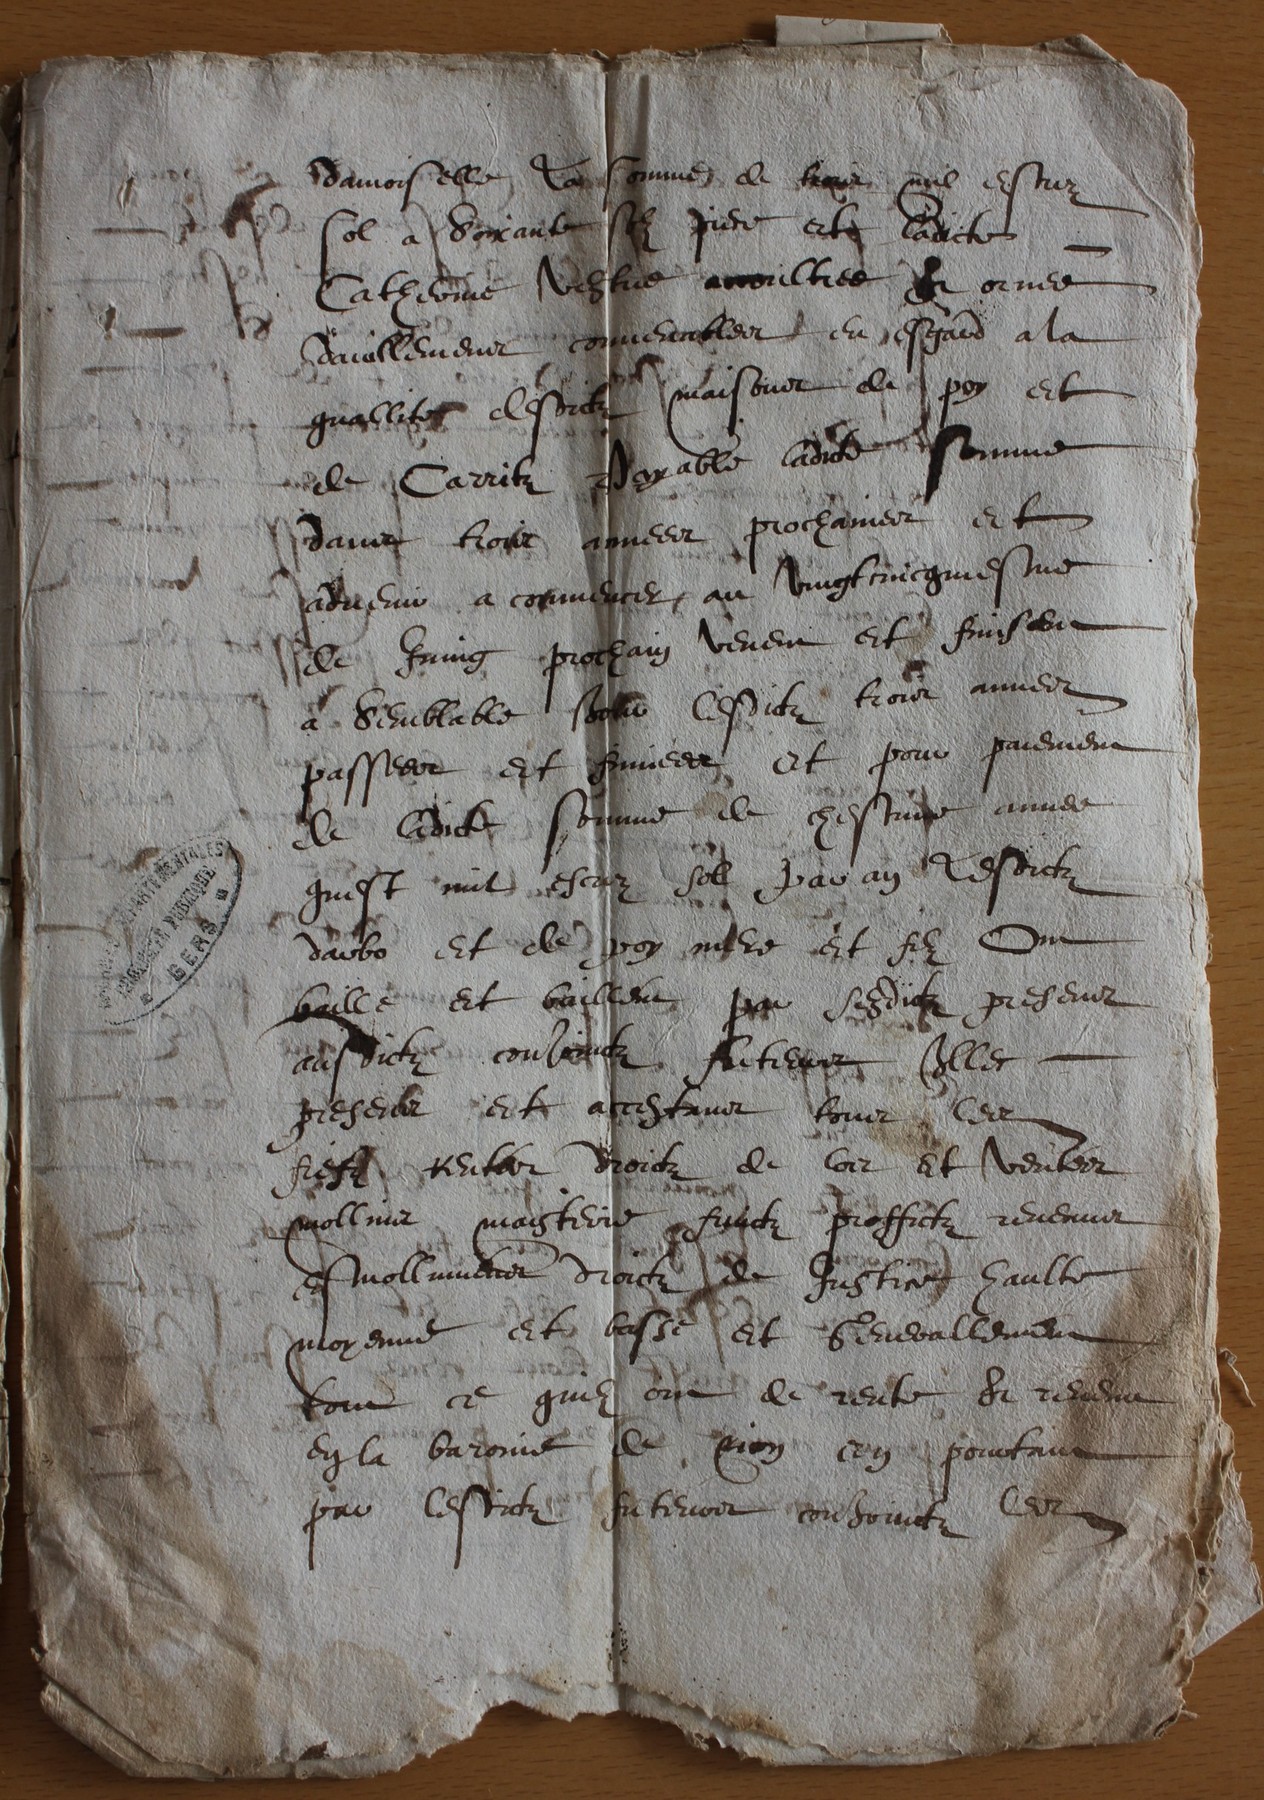 damoiselle la somme de trois mil escuz
sol a soixante solz piece et ladicte
Catherine vestue acoultree et ornee
daccoullemens convenables eu esgard a la
quallite desdictz maisons de poy et
de Carritz payable ladicte somme
dans trois annees prochaines et
advenir a commencer au vingtcincquiesme
de Juing prochain venent et finissent
a semblable jour lesdictz trois annees
passees et finies et pour paiement
de ladicte somme de chescune annee
quest mil escuz sol par an lesdictz
darbo et de poy mere et filz Ont
baille et baillent par sesdictz presens
ausdictz conjoinctz futeurs Illec
presens et acceptans tous les
fiefz rentes droictz de los et ventes
mollins maisterie fruictz proffictz revenus
esmollumens droictz de Justice haulte
moyenne et basse et generallement
tout ce quilz ont de rente et revenu
en la baronie de en pourtant
par lesdictz futeurs conjoinctz les
ARCHIVES DEPARTEMENTALES
GERS